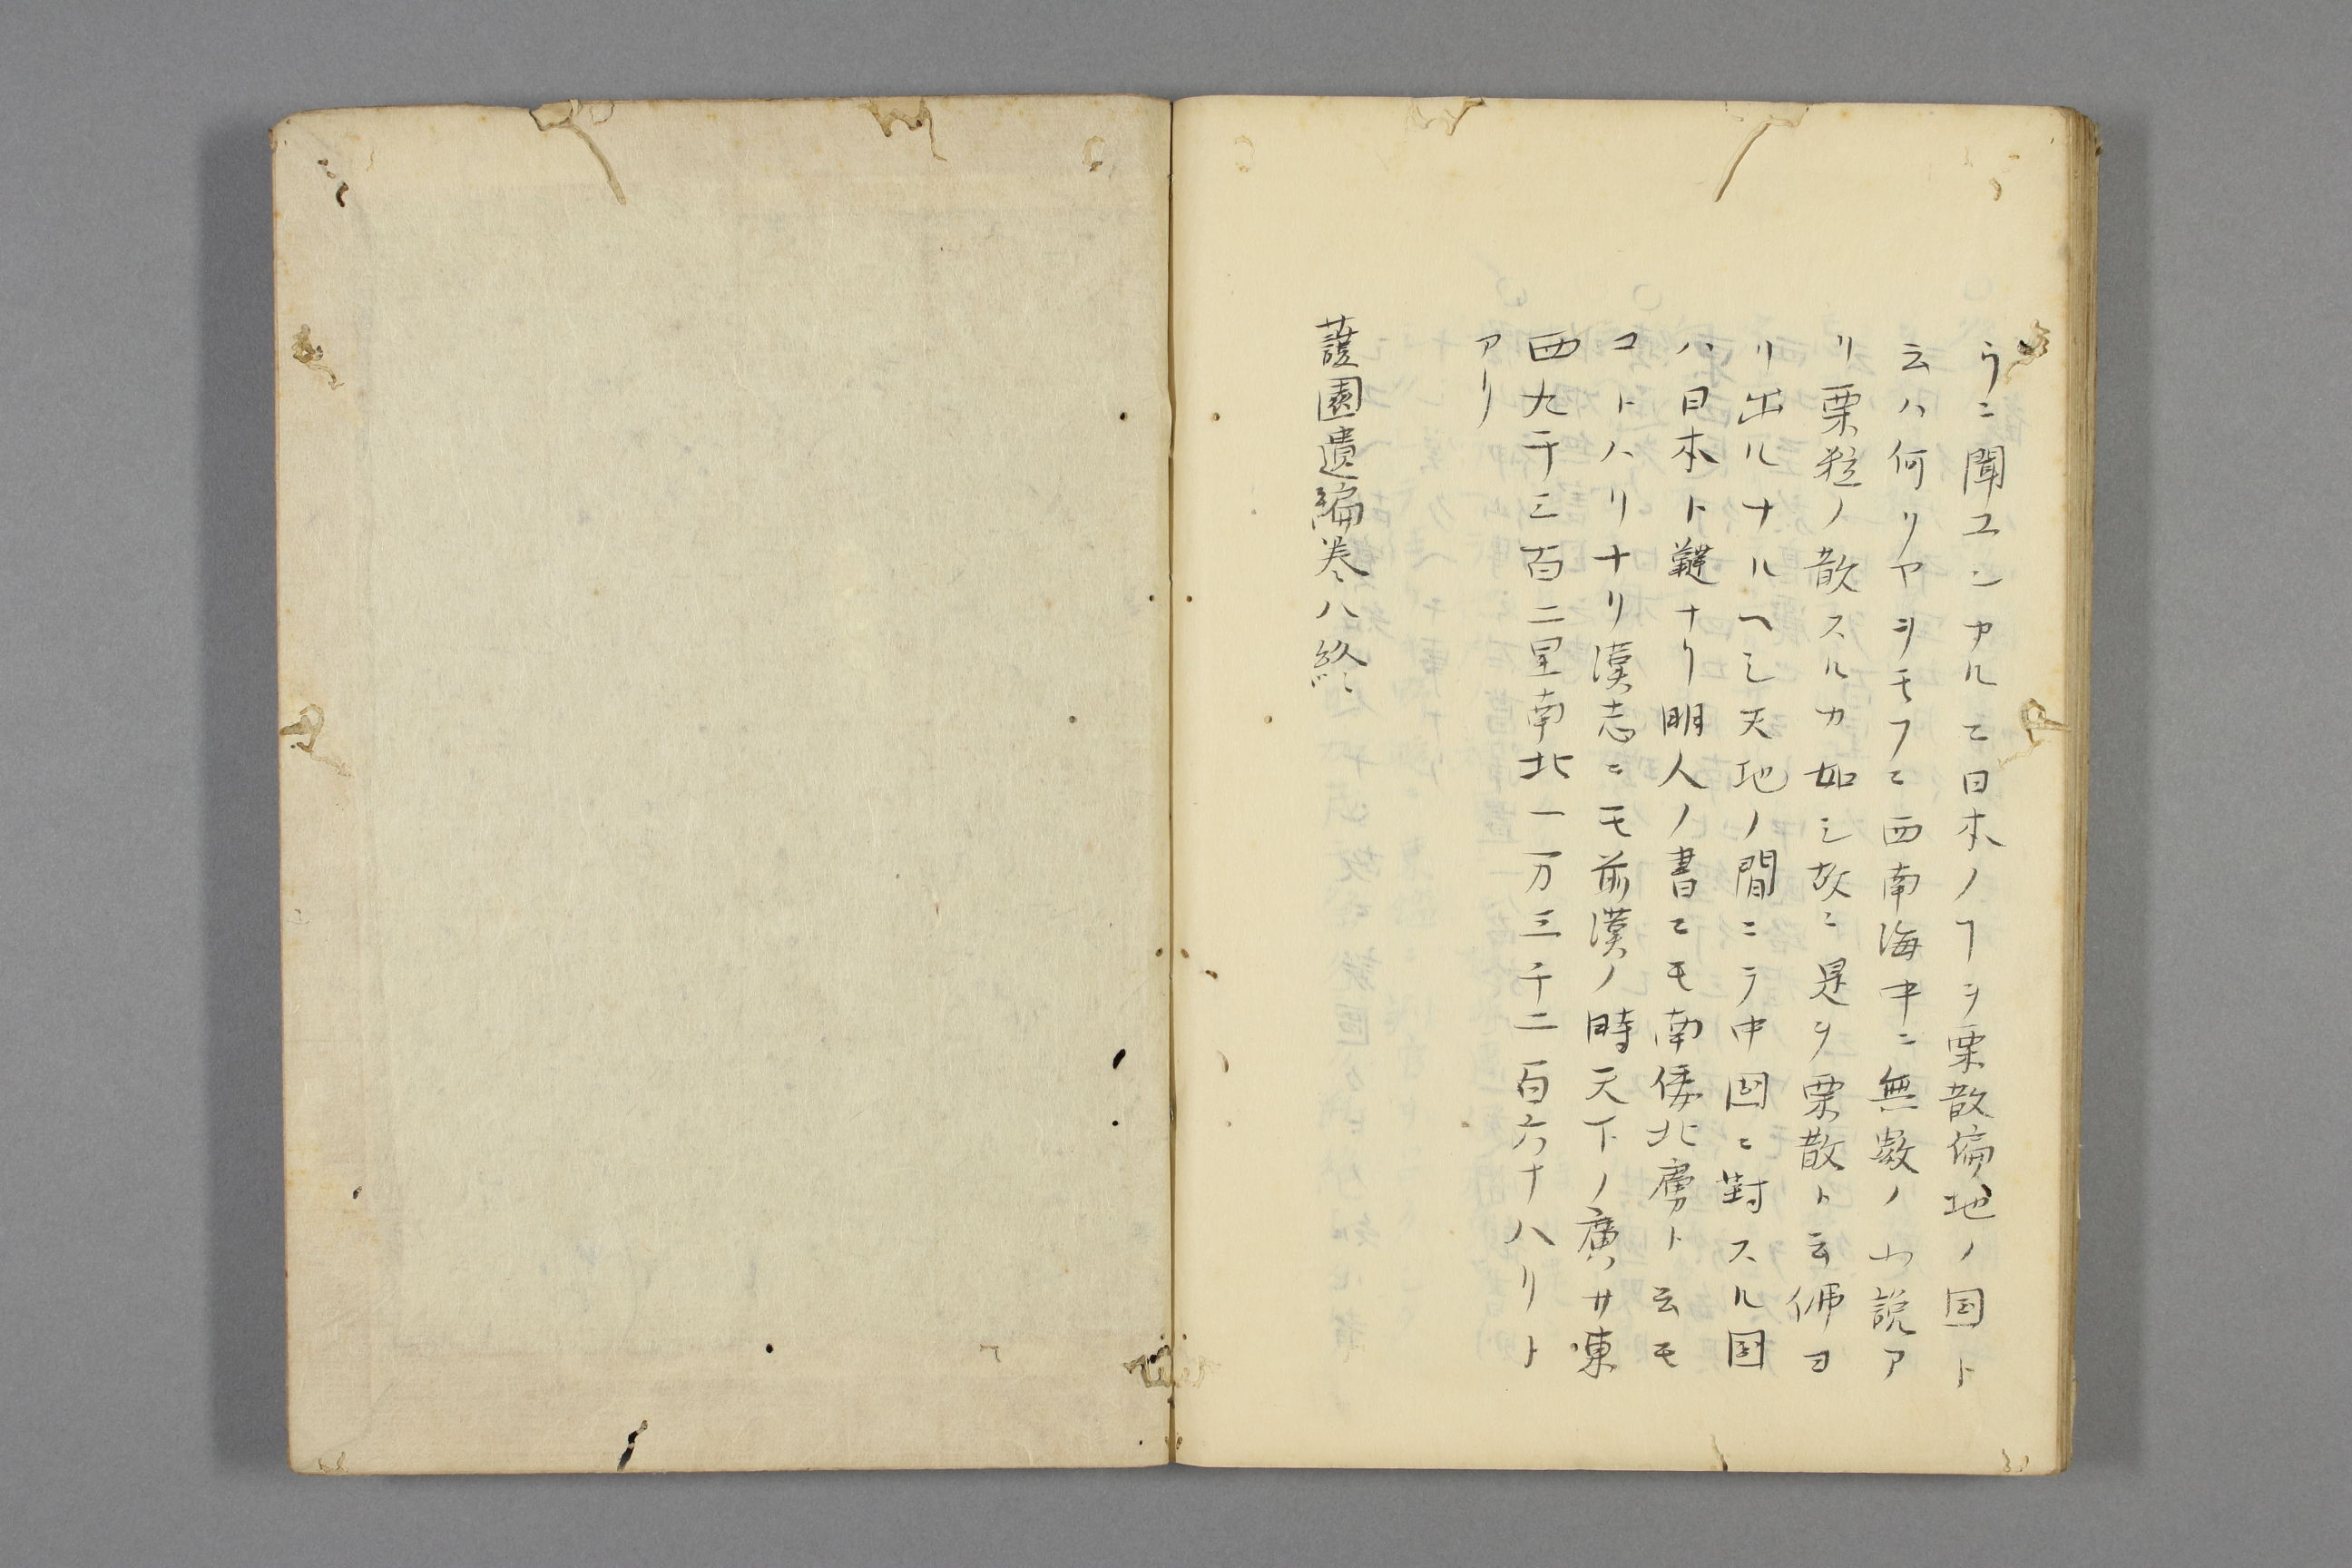 ウニ聞ユシカルニ日本ノヿヲ粟散偏地ノ国ト
云ハ何リヤヲモフニ西南海中ニ無数ノ山説ア
リ粟粒ノ散スルカ如シ故ニ是ヲ粟散ト云佛ヨ
リ出ルナルヘシ天地ノ間ニテ中国ニ對スル国
ハ日本ト韃ナリ明人ノ書ニモ南倭北虜ト云モ
コトハリナリ漢志ニモ前漢ノ時天下ノ廣サ東
西九千三百二里南北一万三千二百六十八リト
アリ
蘐園遺編巻八終